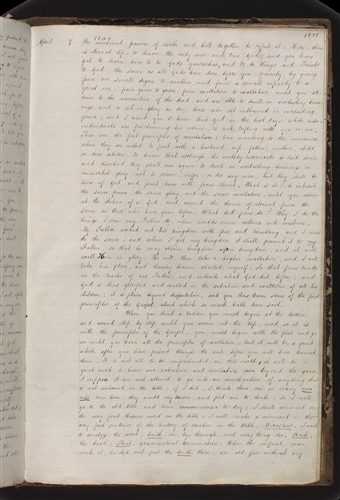 1971
1844
April 7. the combined powers of earth and hell together to refute it. Here, then
is eternal life, to know the only wise and true God; and you have
got to learn how to be Gods yourselves, and to be Kings and Priests
to God, the same as all Gods have done before you; namely, by going
from one small degree to another, and from a small capacity to a
great one, from grace to grace, from exaltation to exaltation, until you
to the resurrection of the dead, and are able to dwell in everlasting
and to sit in glory as do those who sit enthroned in everlasting
power; and I want you to know that God in the last days, while certain
individuals are proclaiming his name, is not trifling with you or me.
These are the first principles of consolation, how consoling to the mourners
when they are called to part with a husband, wife, father, mother, child
or dear relative, to know that although the earthly tabernacle is laid down
and dissolved they shall rise again to dwell in everlasting burnings in
immortal glory, not to sorrow, suffer, or die any more, but they shall be
heirs of God, and joint heirs with Jesus Christ. What is it? to inherit
the same power, the same glory, and the same exaltation, until you arrive
at the station of a God, and ascend the throne of eternal power the
same as those who have gone before. What did Jesus do? Why I do the
things I saw my Father do when worlds came rolling into existence.
My Father worked out his kingdom with fear and trembling, and I must
do the same; and when I get my kingdom I shall present it to my
Father, so that he may obtain kingdom upon kingdom, and it will
exalt him in glory. He will then take a higher exaltation, and I will
take his place, and thereby become exalted myself. So that Jesus treads
in the tracks of his Father, and inherits what God did before; and
God is thus glorified and exalted in the salvation and exaltation of all his
children; it is plain beyond disputation, and you thus learn some of the first
principles of the Gospel, about which so much hath been said.
When you climb a ladder you must begin at the bottom
and ascend step by step until you arrive at the top; and so it is
with the principles of the Gospel, you must begin with the first and go
on until you learn all the principles of exaltation; but it will be a great
while after you have passed through the vail before you will have learned
them. It is not all to be comprehended in this world; it will be a
great work to learn our salvation and exaltation even beyond the grave.
I suppose I am not allowed to go into an investigation of anything that
is not contained in the bible, if I did, I think there are so many over
wise men here, they would cry treason, and put me to death; so I will
go to the old bible, and turn commentator to day; I shall comment on
the very first Hebrew word in the bible; I will make a comment on the
very first sentence of the history of creation in the bible, Berosheit, I want
to analyze the word; baith in, by, through, and every thing else, Rosh
the head; Sheit, grammatical termination. When the inspired man
wrote it, he did not put the baith there; an old Jew without any